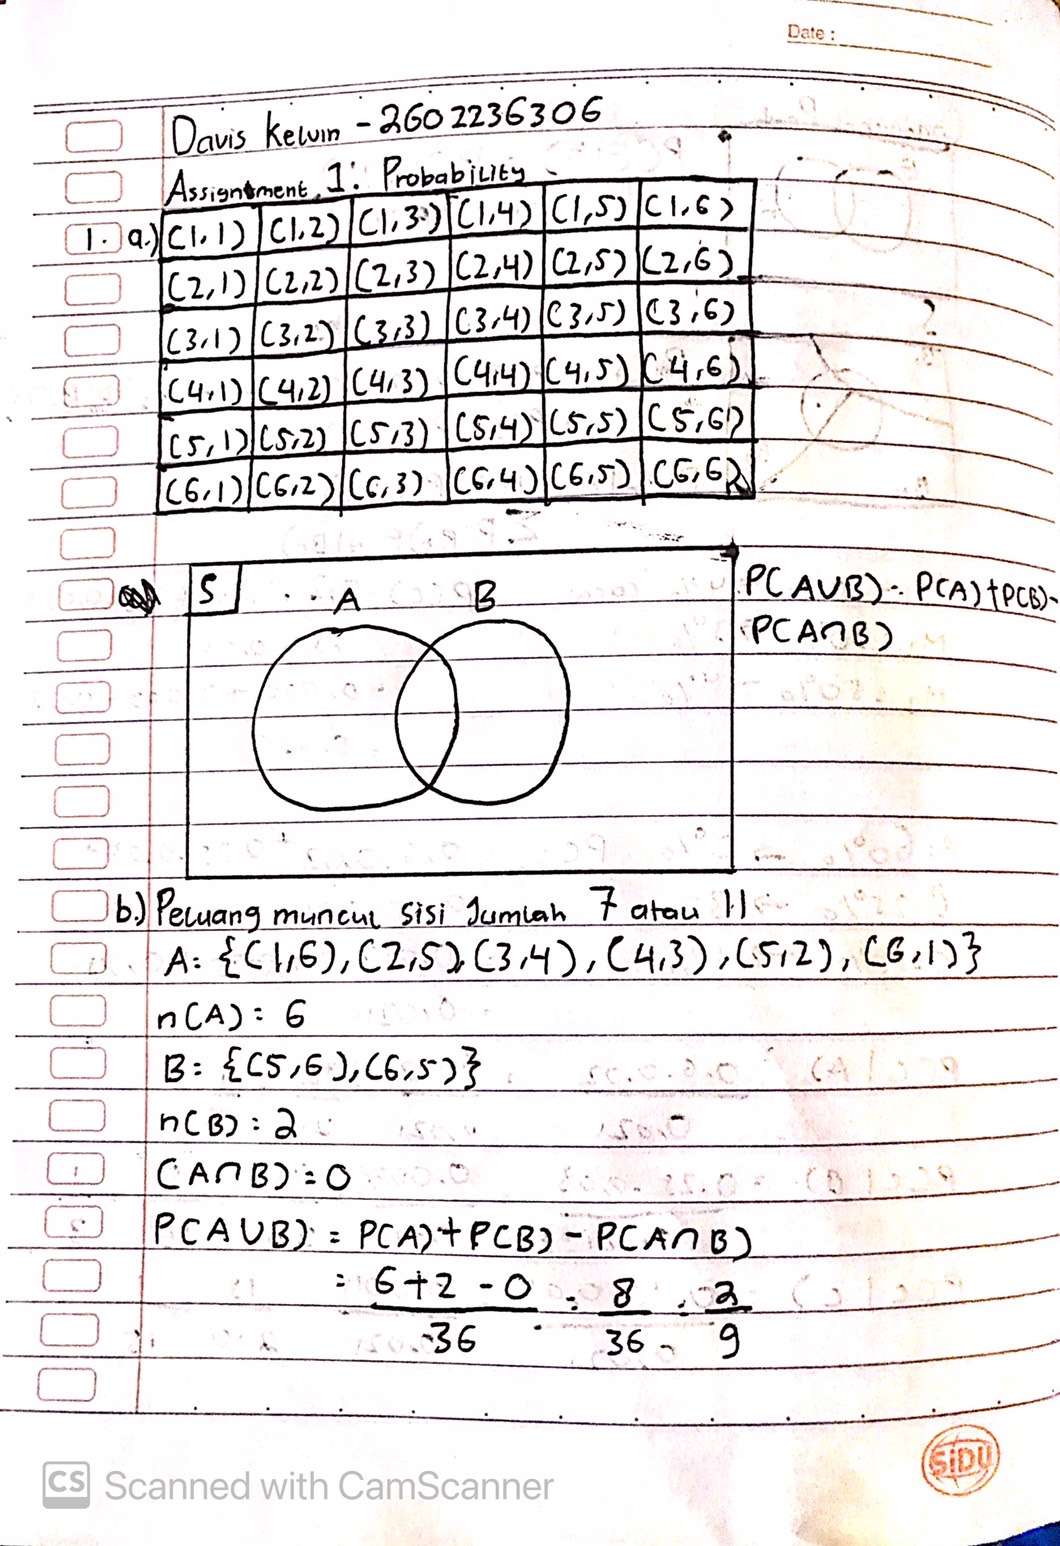 Date :
Davis Kelvin - 2602236306
Assignment 1: Probability
1. a.) (1,1) (1,2) (1,3) (1,4) (1,5) (1,6)
(2,1) (2,2) (2,3) (2,4) (2,5) (2,6)
(3,1) (3,2) (3,3) (3,4) (3,5) (3,6)
(4,1) (4,2) (4,3) (4,4) (4,5) (4,6)
(5,1) (5,2) (5,3) (5,4) (5,5) (5,6)
(6,1) (6,2) (6,3) (6,4) (6,5) (6,6)
S A B
P(A∪B) = P(A)+P(B)-
P(A∩B)
b.) Peluang muncul sisi Jumlah 7 atau 11
A: {(1,6), (2,5), (3,4), (4,3), (5,2), (6,1)}
n(A) : 6
B: {(5,6), (6,5)}
n(B) : 2
(A∩B) = 0
P(A∪B) = P(A)+P(B) - P(A∩B)
= 6+2-0 / 36 = 8 / 36 = 2 / 9
SIDU
CS Scanned with CamScanner